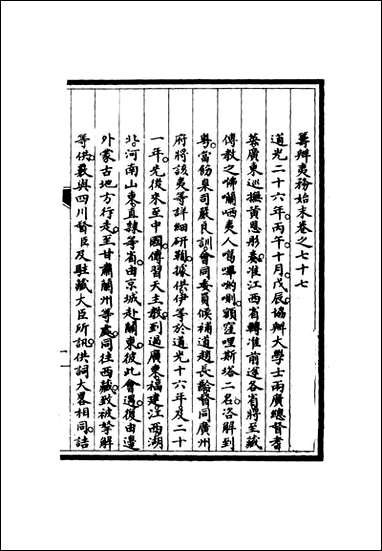 籌辦夷務始末卷之七十七
道光二十六年丙午十月戊辰協辦大學士兩廣總督耆
英廣東巡撫黃恩彤奏准江西省轉准前途各省將至藏
傳教之佛囒哂夷人噶嗶約唎額窪哩斯塔二名洛解到
粵當飭臬司嚴良訓會同委員候補道趙長齡督同廣州
府將該夷等詳細研鞫據供伊等於道光十六年及二十
一年先後來至中國傳習天主教到過廣東福建江西湖
北河南山東直隸等省由京城赴關東彼此會遇復由邊
外蒙古地方行走至甘肅蘭州等處同往西藏致被拏解
等供覈與四川督臣及駐藏大臣所訊供詞大畧相同詰
一